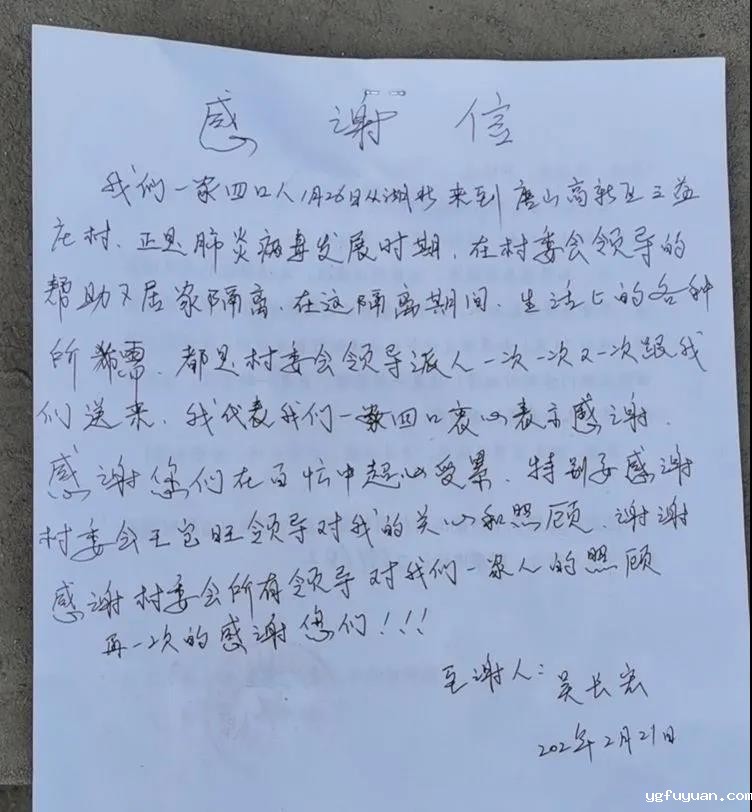 感谢信
我们一家四口人1月26日从湖北来到唐山高新区三益
庄村，正是肺炎病毒发展时期，在村委会领导的
帮助下居家隔离，在这隔离期间，生活上的各种
所需，都是村委会领导派人一次一次又一次跟我
们送来，我代表我们一家四口衷心表示感谢，
感谢您们在百忙中操心受累，特别要感谢
村委会王宝旺领导对我的关心和照顾，谢谢
感谢村委会所有领导对我们一家人的照顾
再一次的感谢您们！！！
至谢人：吴长宏
202年2月21日
ygfuyuan.com